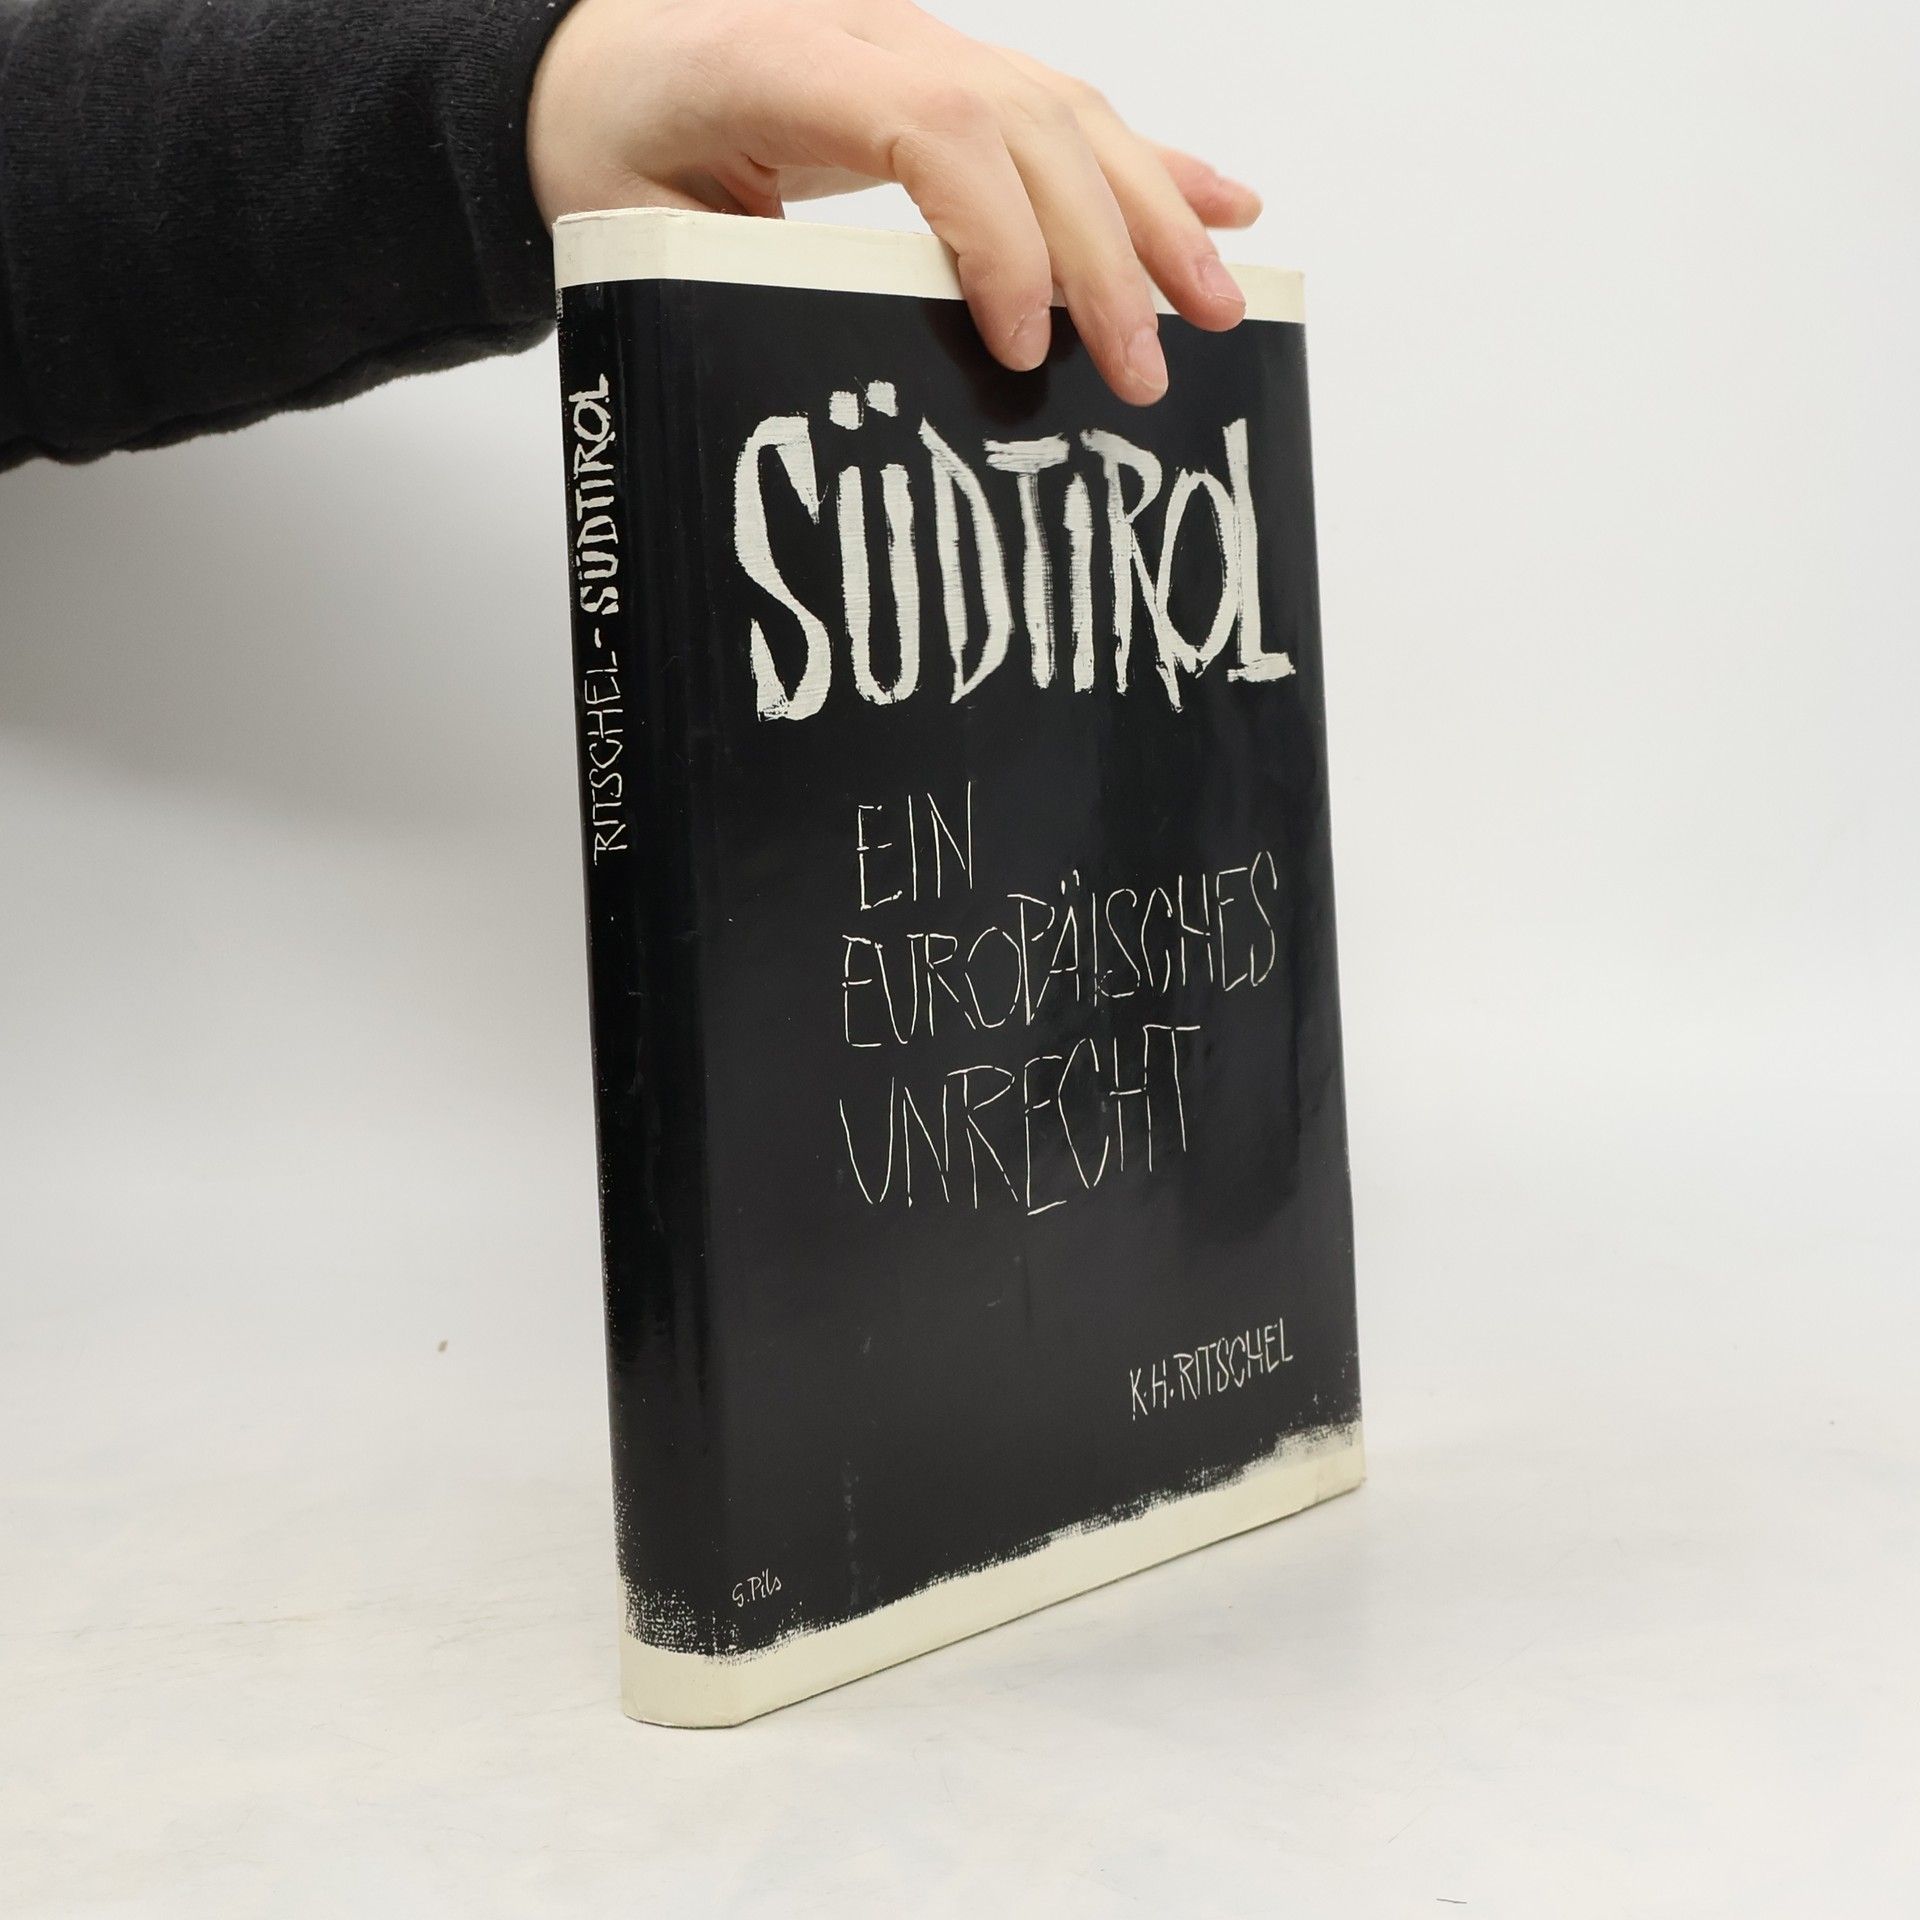 RITSCHEL-SÜDTIROL
SÜDTIROL
EIN
EUROPÄISCHES
UNRECHT
K.H.RITSCHEL
G.Pils